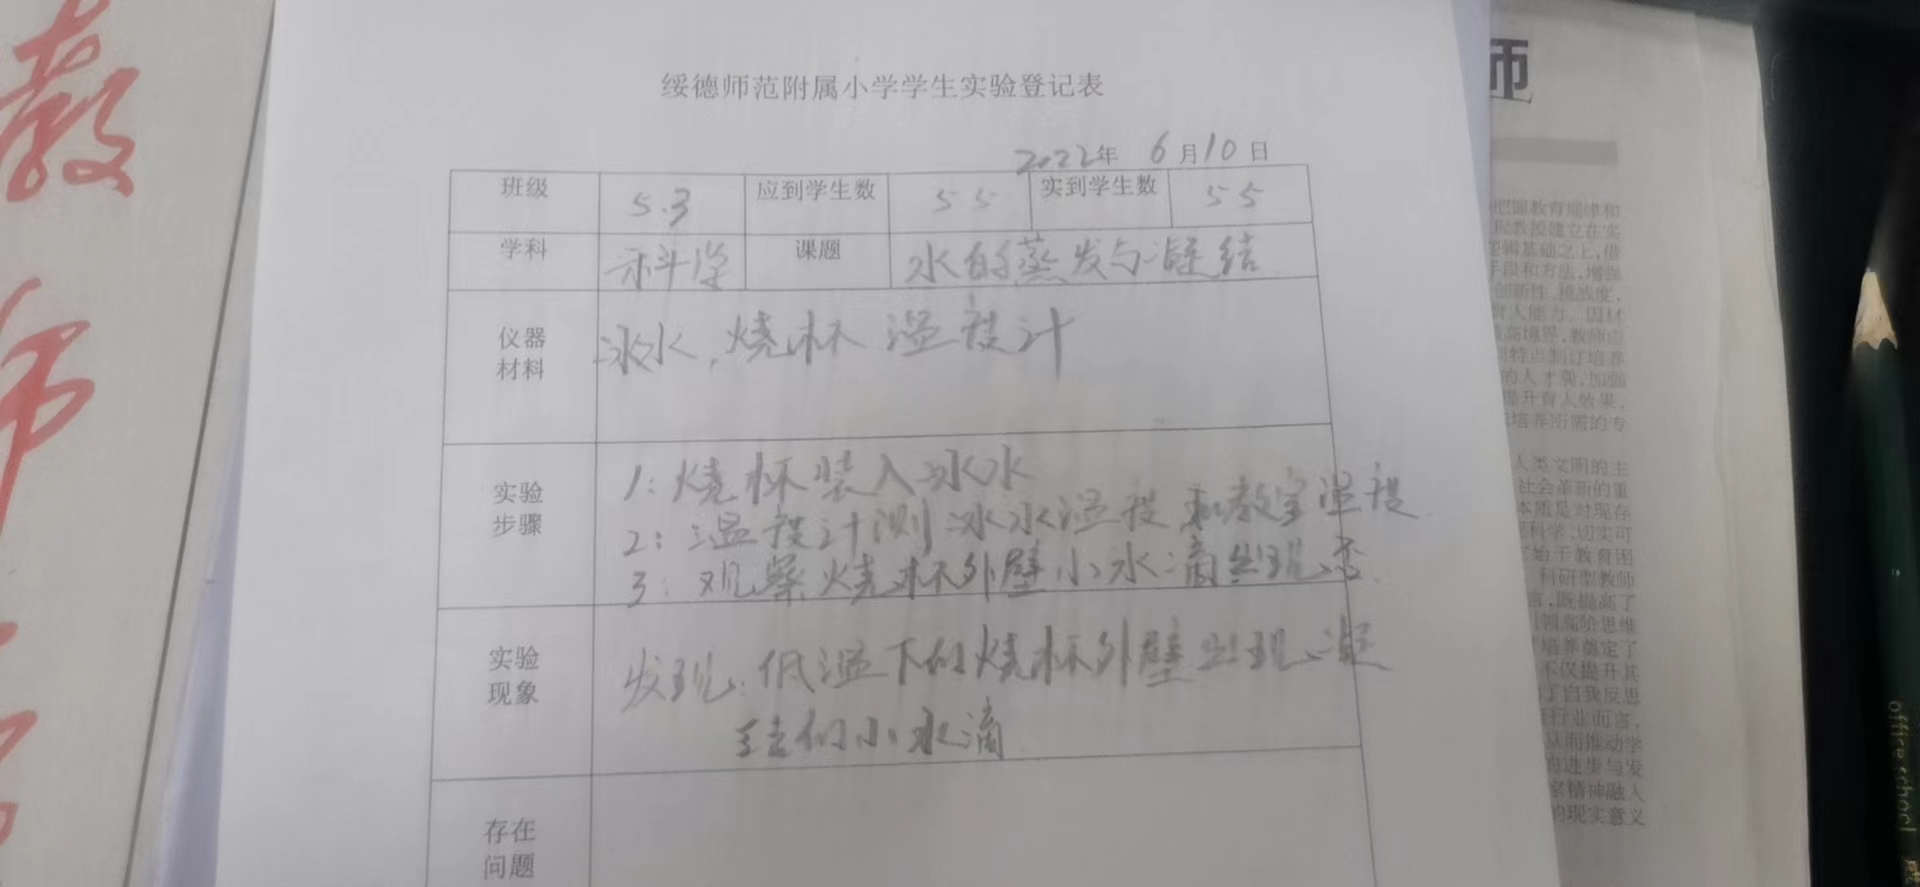 教师
绥德师范附属小学学生实验登记表
2022年 6月10日
班级 5.3 应到学生数 55 实到学生数 55
学科 科学 课题 水的蒸发与凝结
仪器
材料
冰水，烧杯 温度计
实验
步骤
1: 烧杯装入冰水
2: 温度计测冰水温度和教室温度
3: 观察烧杯外壁小水滴出现否.
实验
现象
发现: 低温下的烧杯外壁出现凝
结的小水滴
存在
问题
师
把握教育规律和
创新性、挑战度,
育人能力，因材
高境界,教师应
的人才观,加强
提升育人效果,
培养所需的专
人类文明的主
社会革新的重
本质是对现存
科学,切实可
始于教育困
科研型教师
言,既提高了
高阶思维
培养奠定了
不仅提升其
了自我反思
行业而言,
从而推动学
的进步与发
家精神融入
的现实意义
office school